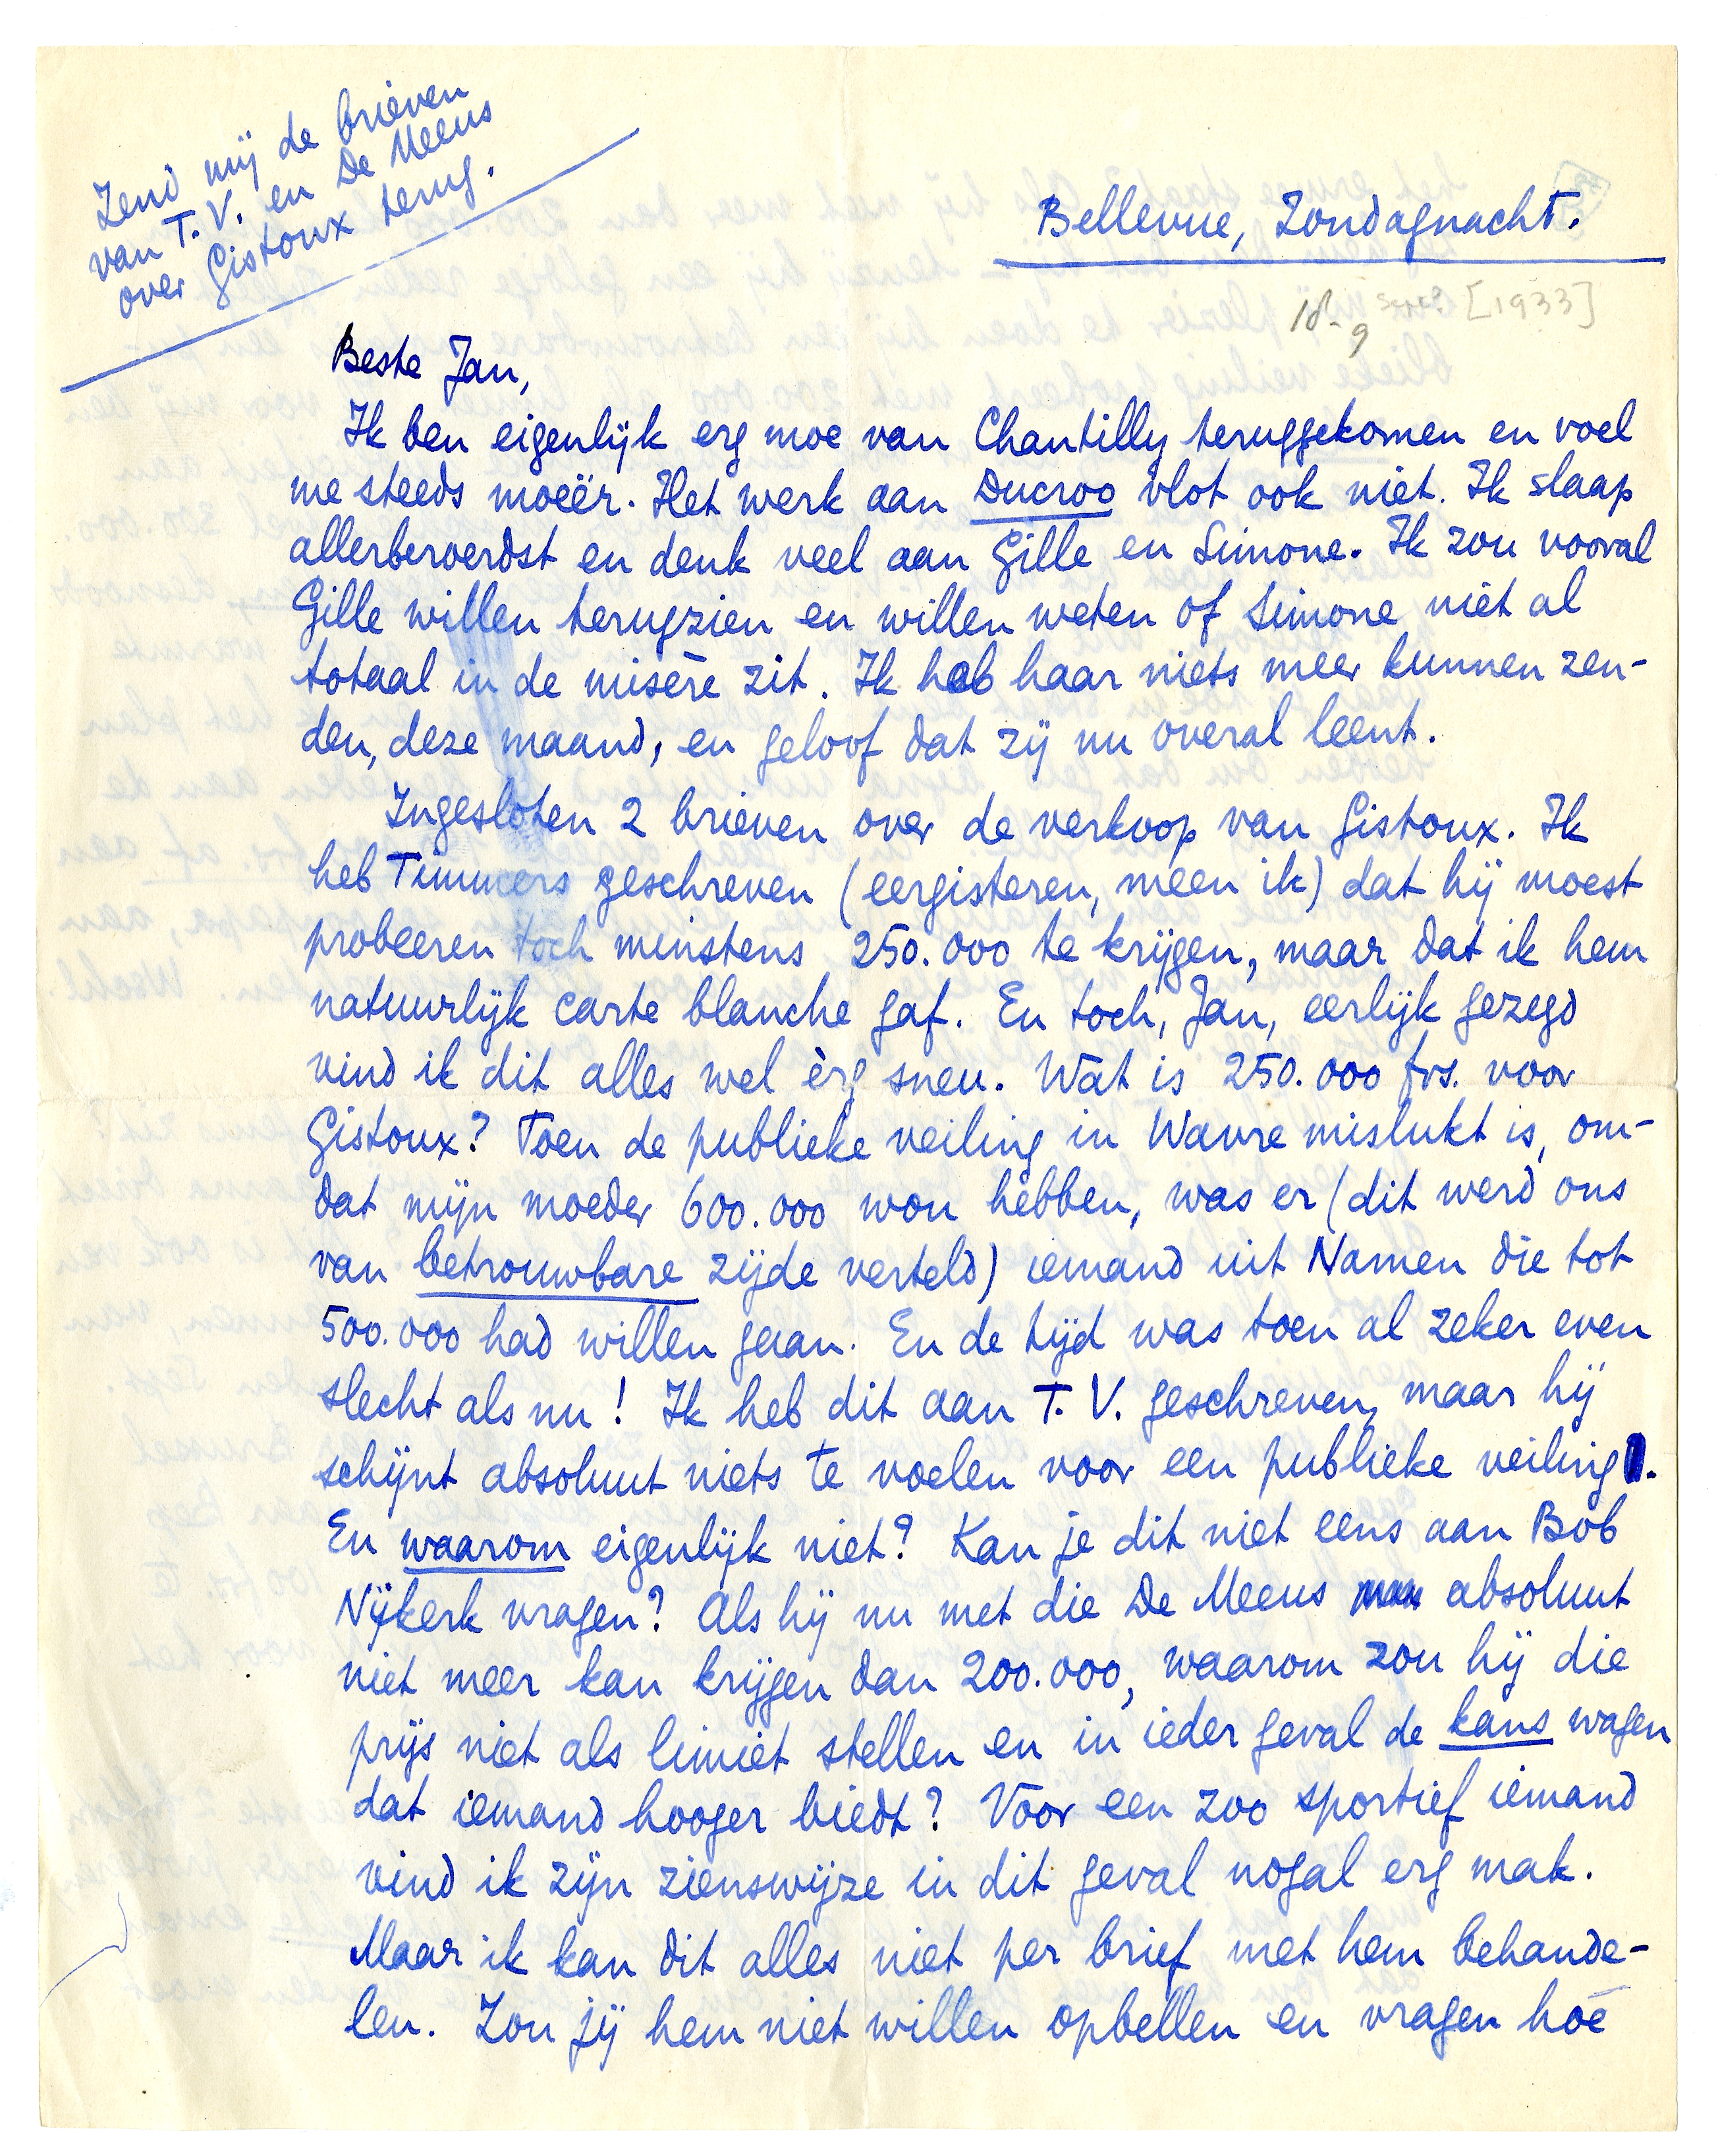 Zend mij de brieven
van T. V. en De Meeus
over Gistoux terug.
Bellevue, Zondagnacht.
18-9 Sept? [1933]
Beste Jan,
Ik ben eigenlijk erg moe van Chantilly teruggekomen en voel
me steeds moeër. Het werk aan Ducroo vlot ook niet. Ik slaap
allerberoerdst en denk veel aan Gille en Simone. Ik zou vooral
Gille willen terugzien en willen weten of Simone niet al
totaal in de misère zit. Ik heb haar niets meer kunnen zen-
den, deze maand, en geloof dat zij nu overal leent.
Ingesloten 2 brieven over de verkoop van Gistoux. Ik
heb Timmers geschreven (eergisteren, meen ik) dat hij moest
probeeren toch minstens 250.000 te krijgen, maar dat ik hem
natuurlijk carte blanche gaf. En toch, Jan, eerlijk gezegd
vind ik dit alles wel èrg sneu. Wat is 250.000 frs. voor
Gistoux? Toen de publieke veiling in Wavre mislukt is, om-
dat mijn moeder 600.000 wou hebben, was er (dit werd ons
van betrouwbare zijde verteld) iemand uit Namen die tot
500.000 had willen gaan. En de tijd was toen al zeker even
slecht als nu! Ik heb dit aan T. V. geschreven, maar hij
schijnt absoluut niets te voelen voor een publieke veiling.
En waarom eigenlijk niet? Kan je dit niet eens aan Bob
Nijkerk vragen? Als hij nu met die De Meeus absoluut
niet meer kan krijgen dan 200.000, waarom zou hij die
prijs niet als limiet stellen en in ieder geval de kans wagen
dat iemand hooger biedt? Voor een zoo sportief iemand
vind ik zijn zienswijze in dit geval nogal erg mak.
Maar ik kan dit alles niet per brief met hem behande-
len. Zou jij hem niet willen opbellen en vragen hoe